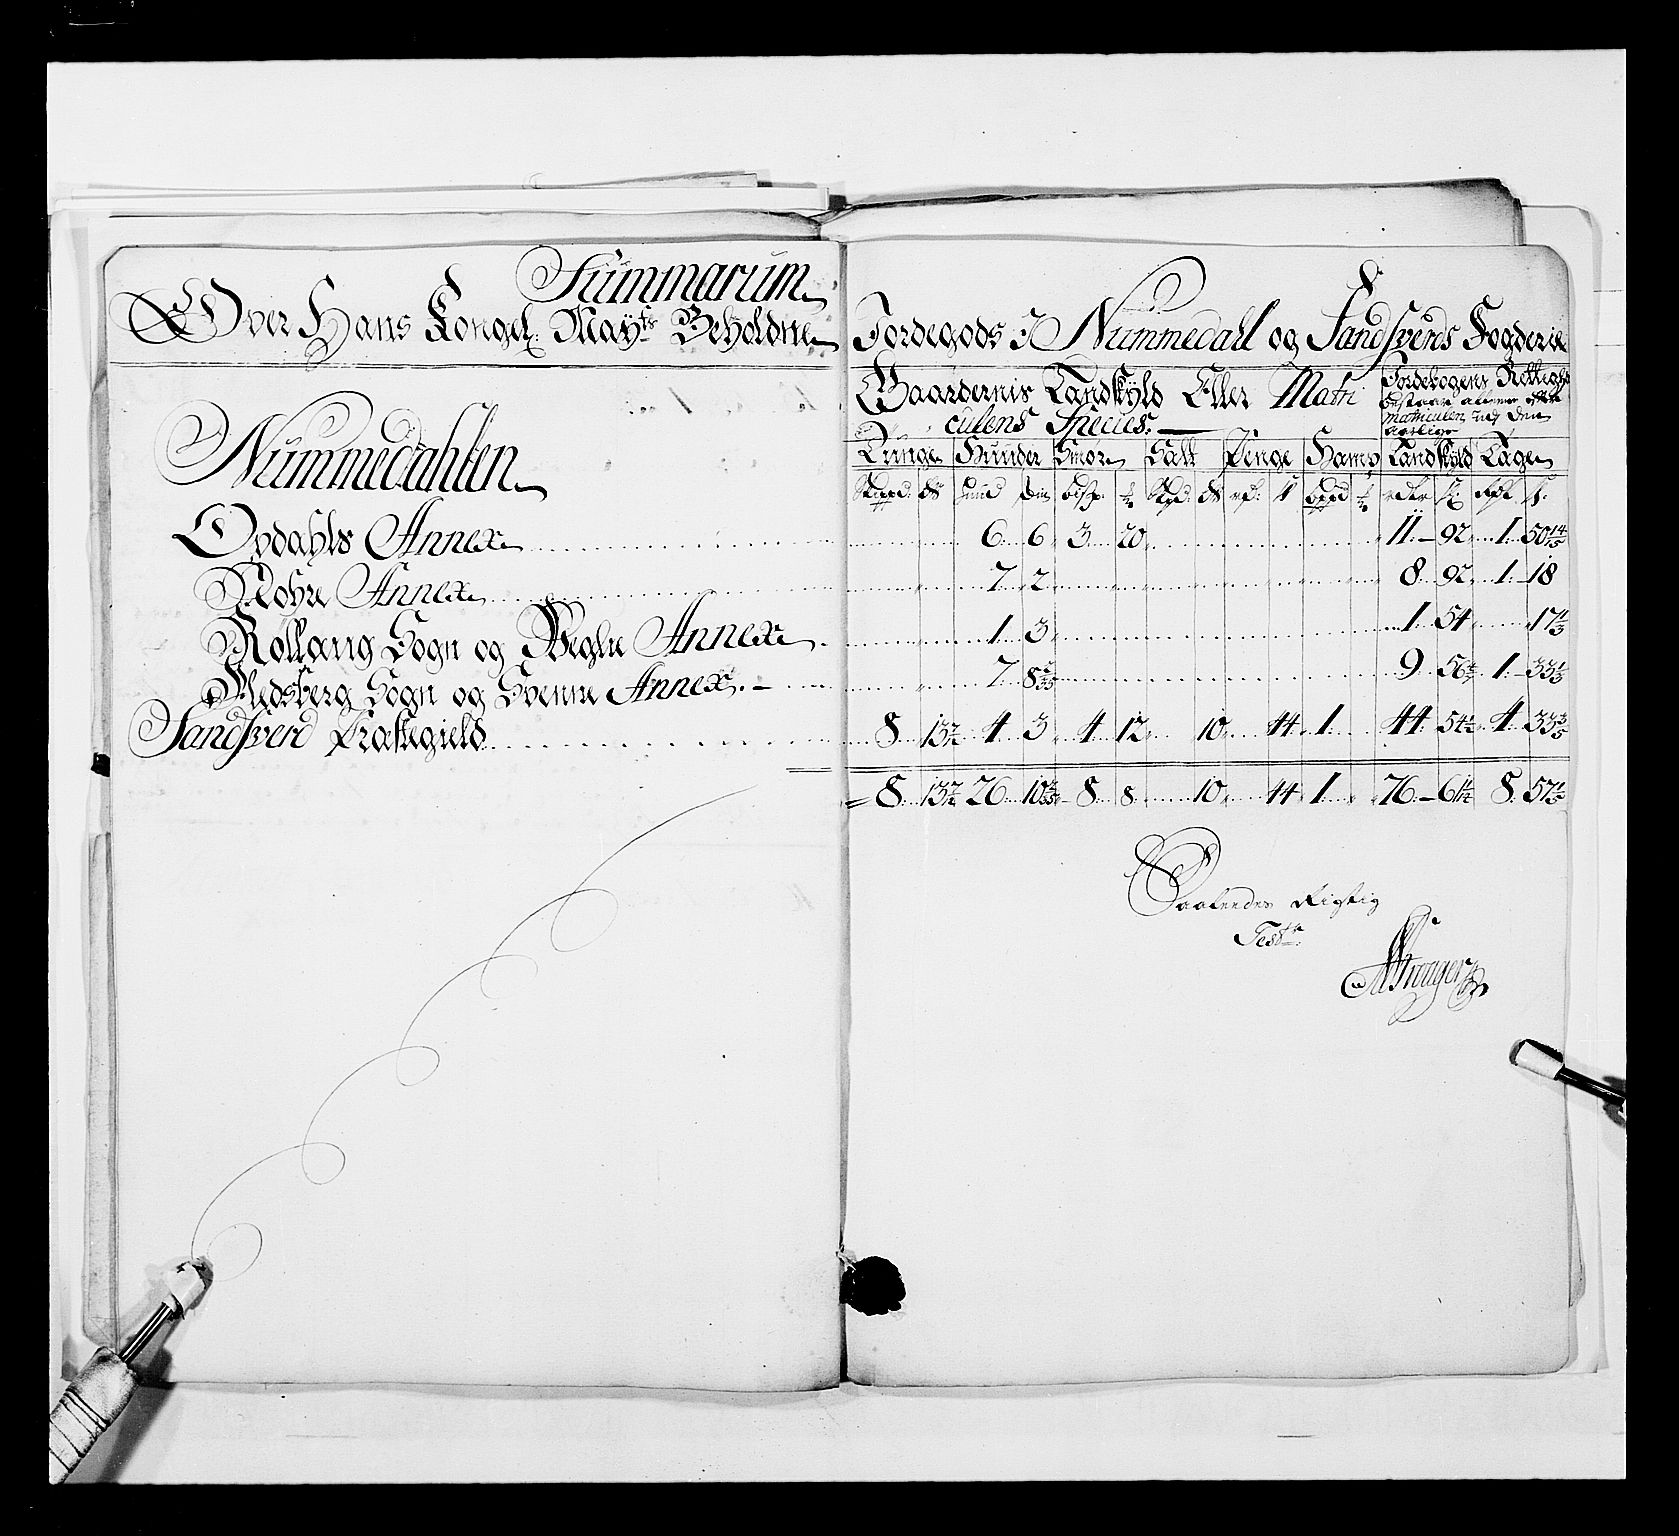 Summarum
Over Hans Kongel. Mayts Beholdne Jordegods I Nummedahl og Sandsverds Fogderie
Gaardernis Landskyld Eller Matri
culens Species.
Jordebogens Rettighed
bestaar aleene efter
Matriculen udj den
Aarlige
Tunge Hunder Smør Salt Penge Hamp Landskyld Tage
Nummedahlen
Opdahls Annex 6 6 3 20 11 92 1 50 14/15
Nohre Annex 7 2 8 92 1 18
Rollaug Sogn og Weglie Annex 1 3 1 54 17
Fledsberg Sogn og Svenne Annex 7 8 9 56 1 33 1/3
Sandsverd Præstegield 8 13 1/2 4 3 4 12 10 44 1 44 54 1/2 4 33 3/5
8 13 1/2 26 10 8 8 10 44 1 76 61 8 57
Saaleedes Rigtig
Test: